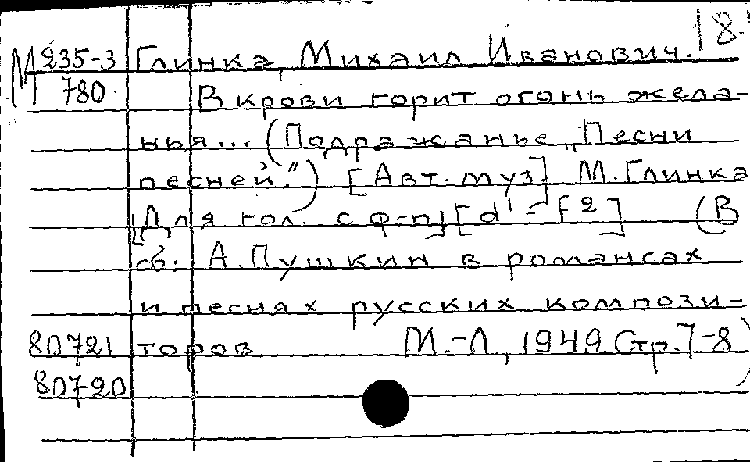 18.
М 235-3 Глинка, Михаил Иванович.
780. В крови горит огонь жела-
нья... (Подражанье „Песни
песней".) [Авт. муз] М. Глинка
[Для гол. с ф-п] [d¹ - f²] (В
сб. А. Пушкин в романсах
и песнях русских компози-
80721 торов М.-Л., 1949 Стр. 7-8)
80720